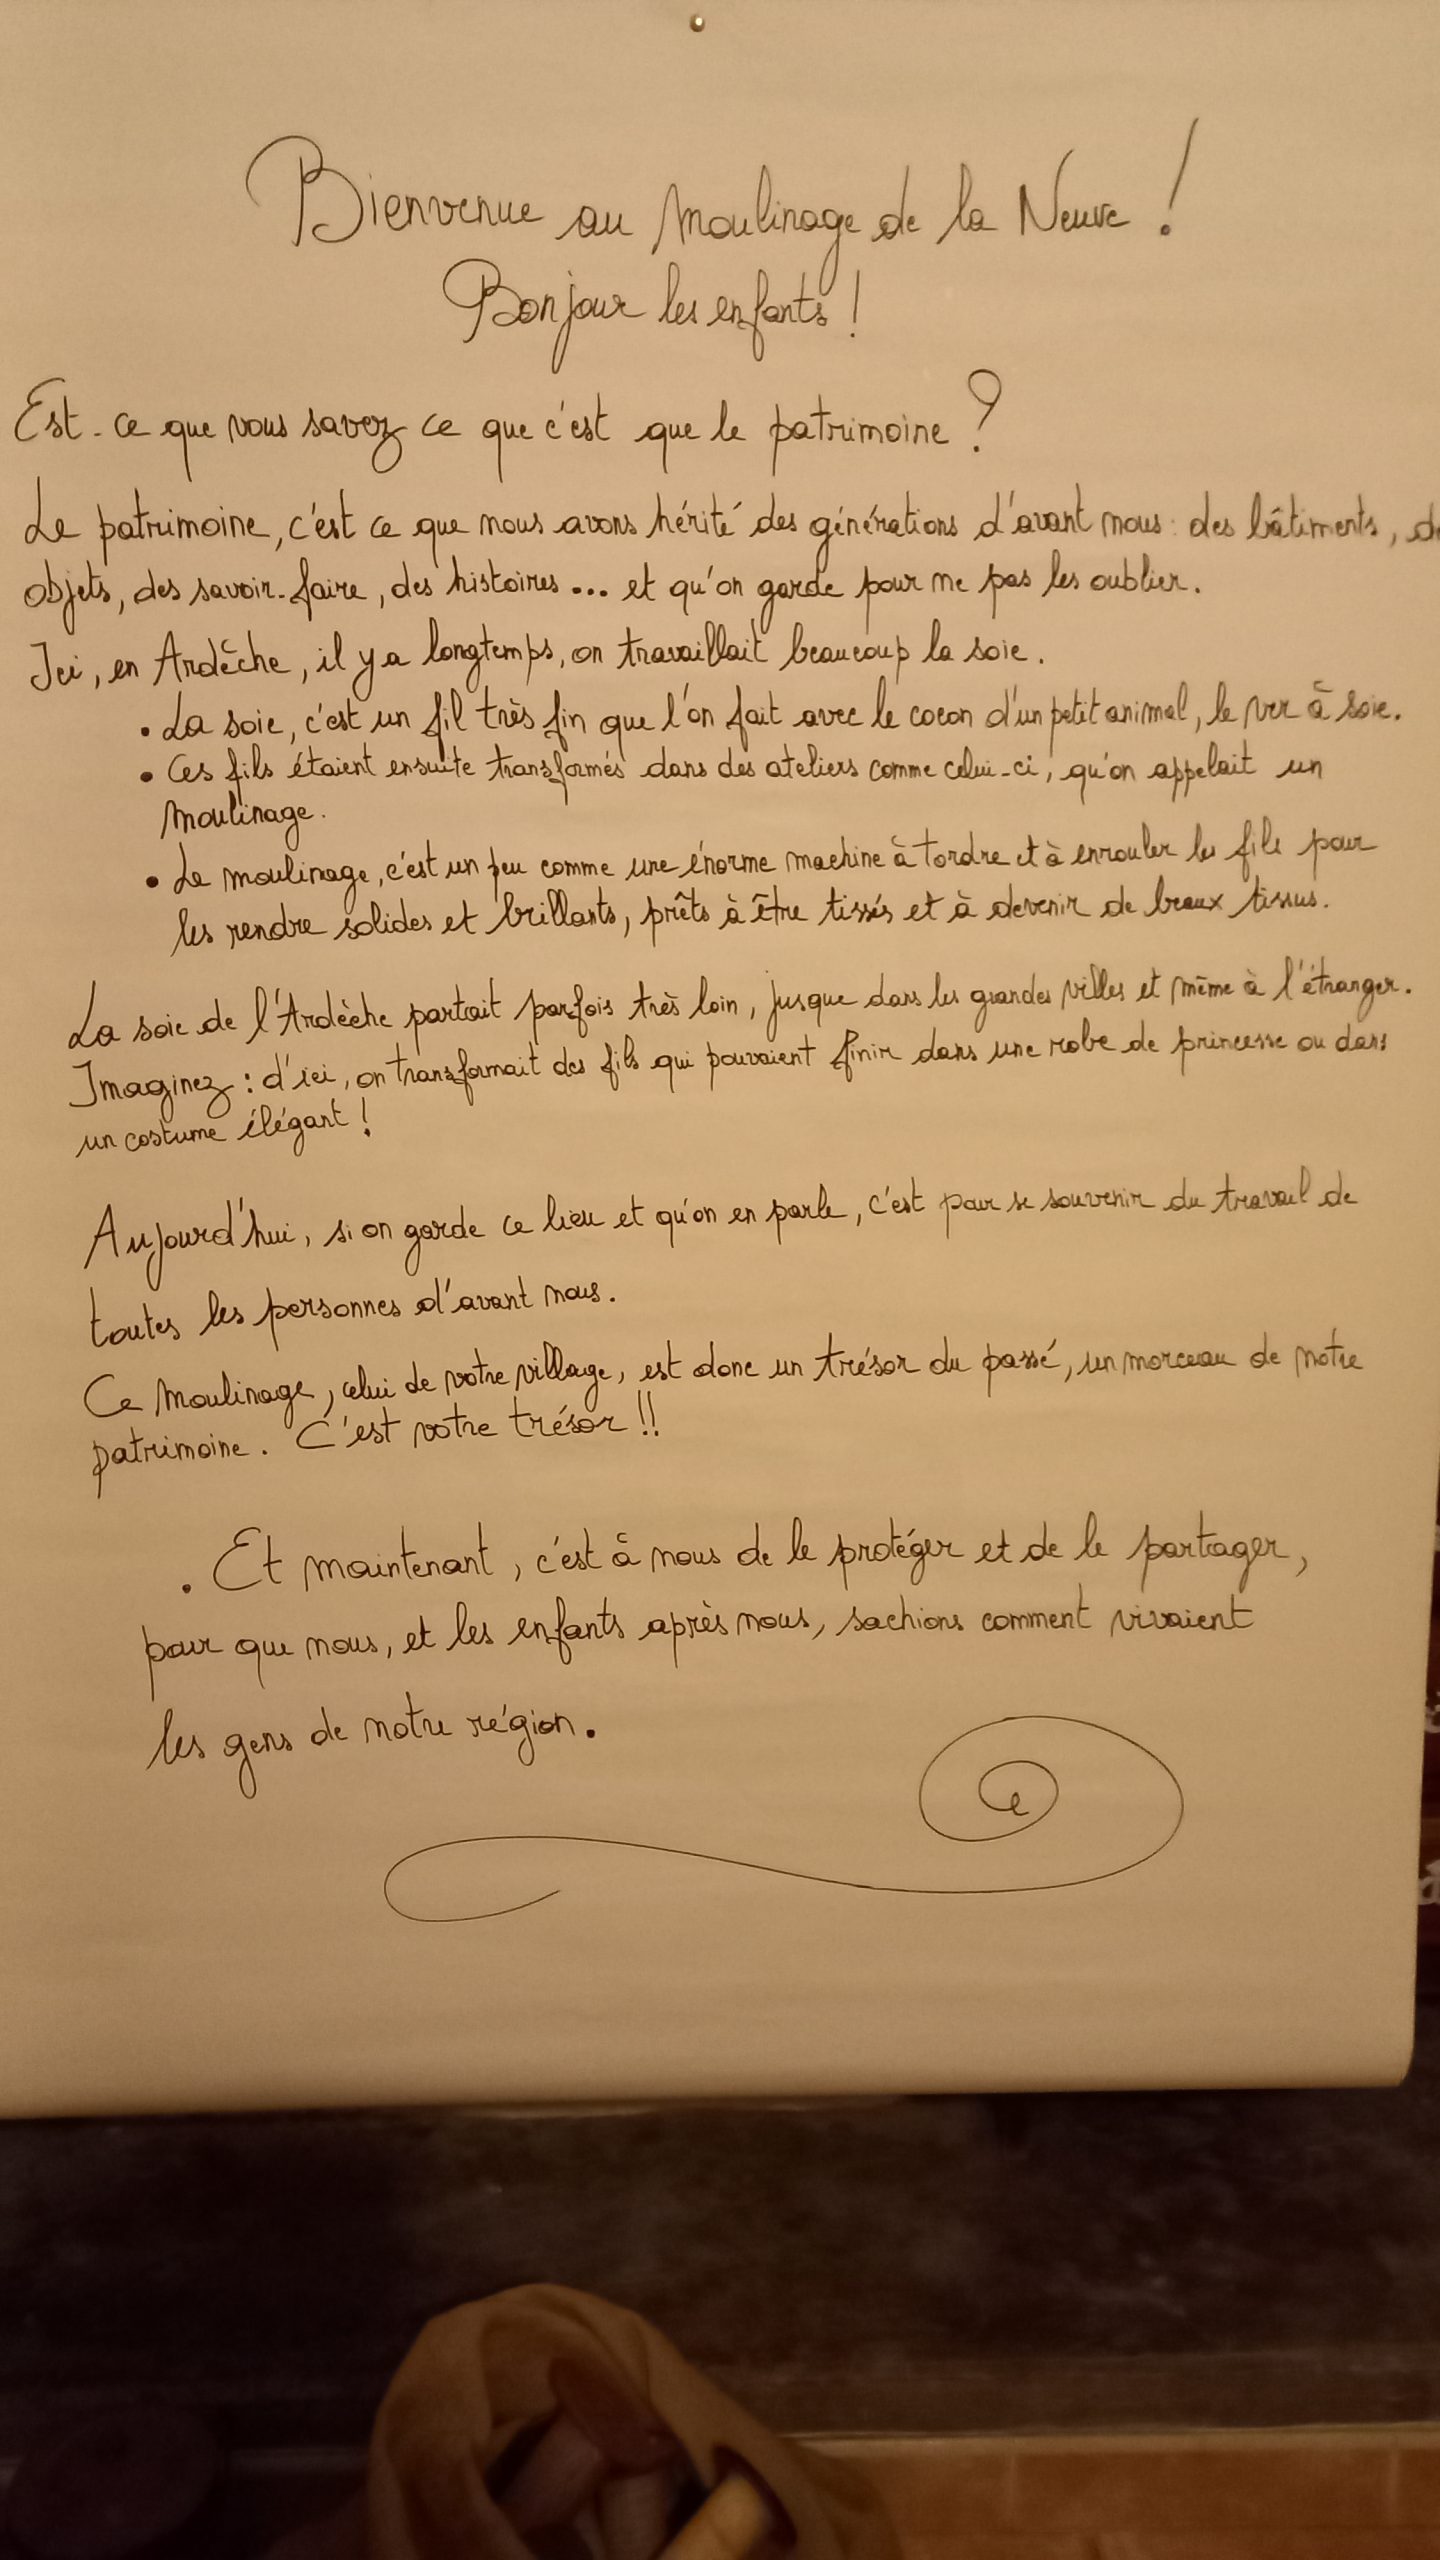 Bienvenue au Moulinage de la Neuve !
Bonjour les enfants !
Est-ce que vous savez ce que c'est que le patrimoine ?
Le patrimoine, c'est ce que nous avons hérité des générations d'avant nous : des bâtiments, de
objets, des savoir-faire, des histoires... et qu'on garde pour ne pas les oublier.
Ici, en Ardèche, il y a longtemps, on travaillait beaucoup la soie.
• La soie, c'est un fil très fin que l'on fait avec le cocon d'un petit animal, le ver à soie.
• Ces fils étaient ensuite transformés dans des ateliers comme celui-ci, qu'on appelait un
Moulinage.
• Le moulinage, c'est un peu comme une énorme machine à tordre et à enrouler les fils pour
les rendre solides et brillants, prêts à être tissés et à devenir de beaux tissus.
La soie de l'Ardèche partait parfois très loin, jusque dans les grandes villes et même à l'étranger.
Imaginez : d'ici, on transformait des fils qui pouvaient finir dans une robe de princesse ou dans
un costume élégant !
Aujourd'hui, si on garde ce lieu et qu'on en parle, c'est pour se souvenir du travail de
toutes les personnes d'avant nous.
Ce Moulinage, celui de votre village, est donc un trésor du passé, un morceau de notre
patrimoine. C'est votre trésor !!
. Et maintenant, c'est à nous de le protéger et de le partager,
pour que nous, et les enfants après nous, sachions comment vivaient
les gens de notre région.